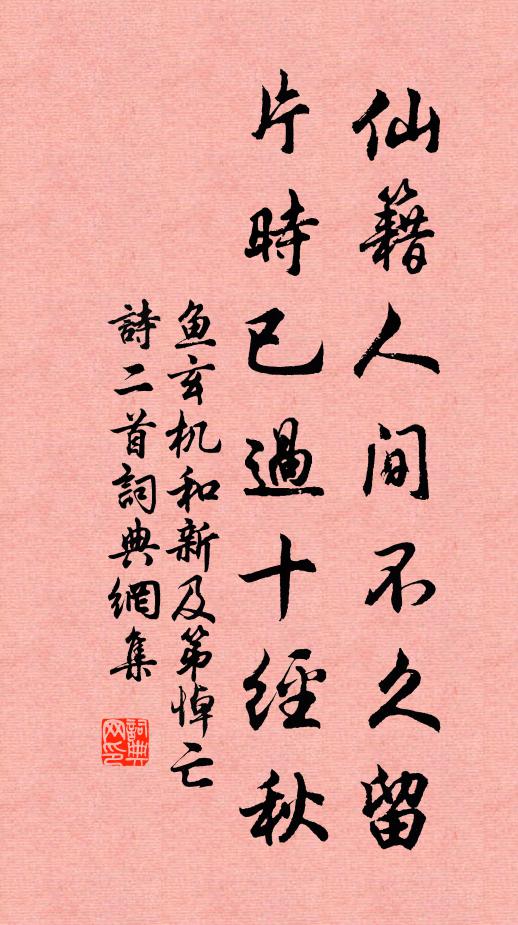 仙籍人間不久留
片時已過十經秋
魚玄机和新及第悼亡
詩二首詞典網集
詞典
网印